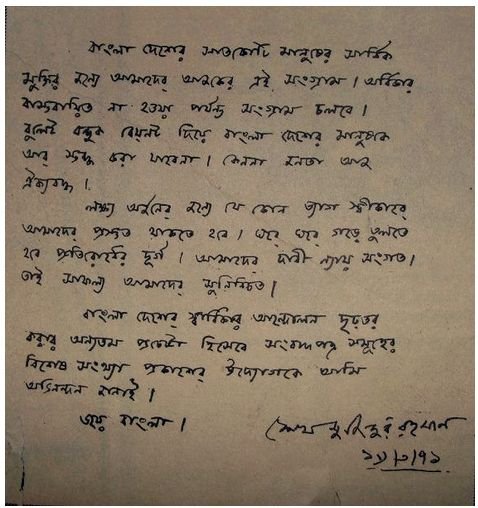 বাংলা দেশের সাতকোটি মানুষের সার্বিক
মুক্তির জন্যে আমাদের আজকের এই সংগ্রাম। অধিকার
বাস্তবায়িত না হওয়া পর্যন্ত সংগ্রাম চলবে।
বুলেট বন্দুক বেয়নেট দিয়ে বাংলা দেশের মানুষকে
আর স্তব্ধ করা যাবেনা। কেননা জনতা আজ
ঐক্যবদ্ধ।
লক্ষ্য অর্জনের জন্যে যে কোন ত্যাগ স্বীকারে
আমাদের প্রস্তুত থাকতে হবে। ঘরে ঘরে গড়ে তুলতে
হবে প্রতিরোধের দুর্গ। আমাদের দাবী ন্যায় সংগত।
তাই সাফল্য আমাদের সুনিশ্চিত।
বাংলা দেশের স্বাধিকার আন্দোলন দৃঢ়তর
করার অন্যতম প্রচেষ্টা হিসেবে সংবাদপত্র সমূহের
বিশেষ সংখ্যা প্রকাশের উদ্যোগকে আমি
অভিনন্দন জানাই।
জয় বাংলা।
শেখ মুজিবুর রহমান